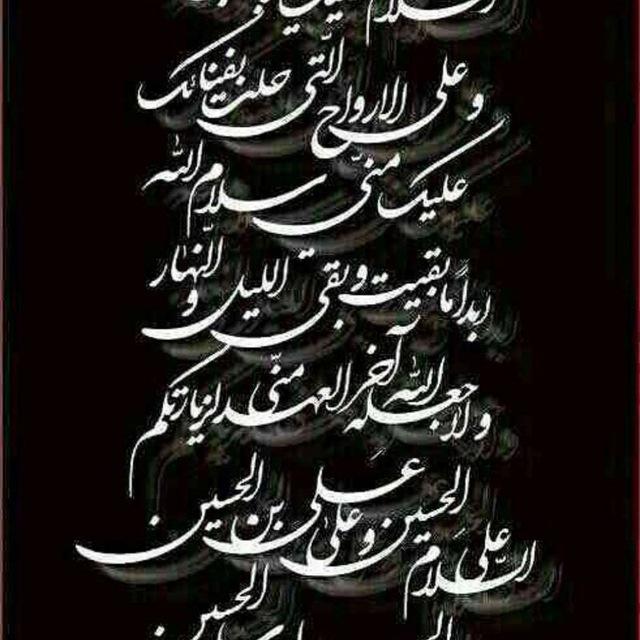 السلام علیک یا
و علی الارواح التی حلت بفنائک
علیک منّی سلام الله
ابداً ما بقیت و بقی اللیل و النّهار
و لا جعله الله آخر العهد منّی لزیارتکم
السّلام علی الحسین و علی علی بن الحسین
الحسین